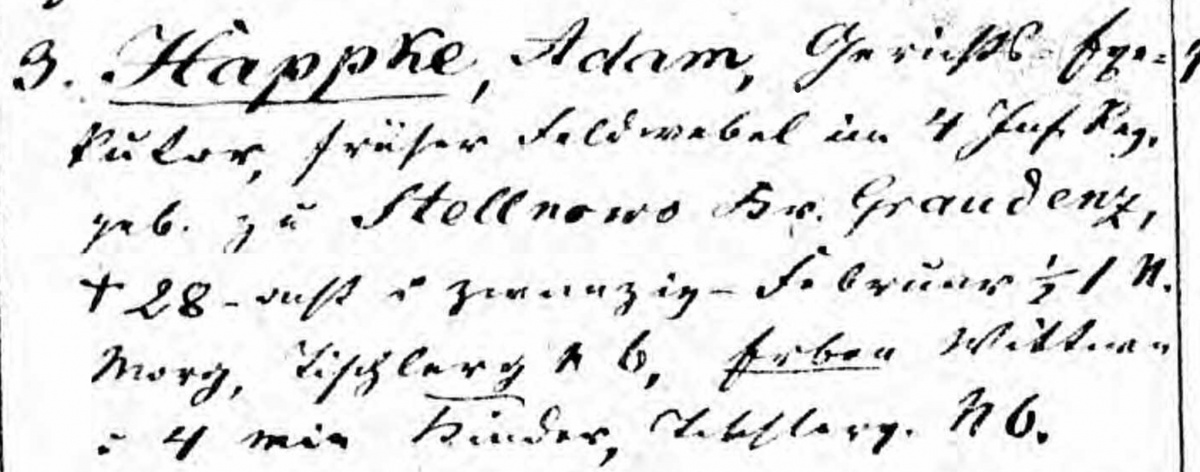 3. Häppke, Adam, Gerichts-Exe=
kutor, früher Feldwebel im 4 Inf. Reg.
geb. zu Stellnowo Kr. Graudenz,
† 28 - acht u zwanzig - Februar ½ 1 N.
Morg, Tischlerg N 6, Erben Wittwe
u 4 min Kinder, Tischlerg. N 6.